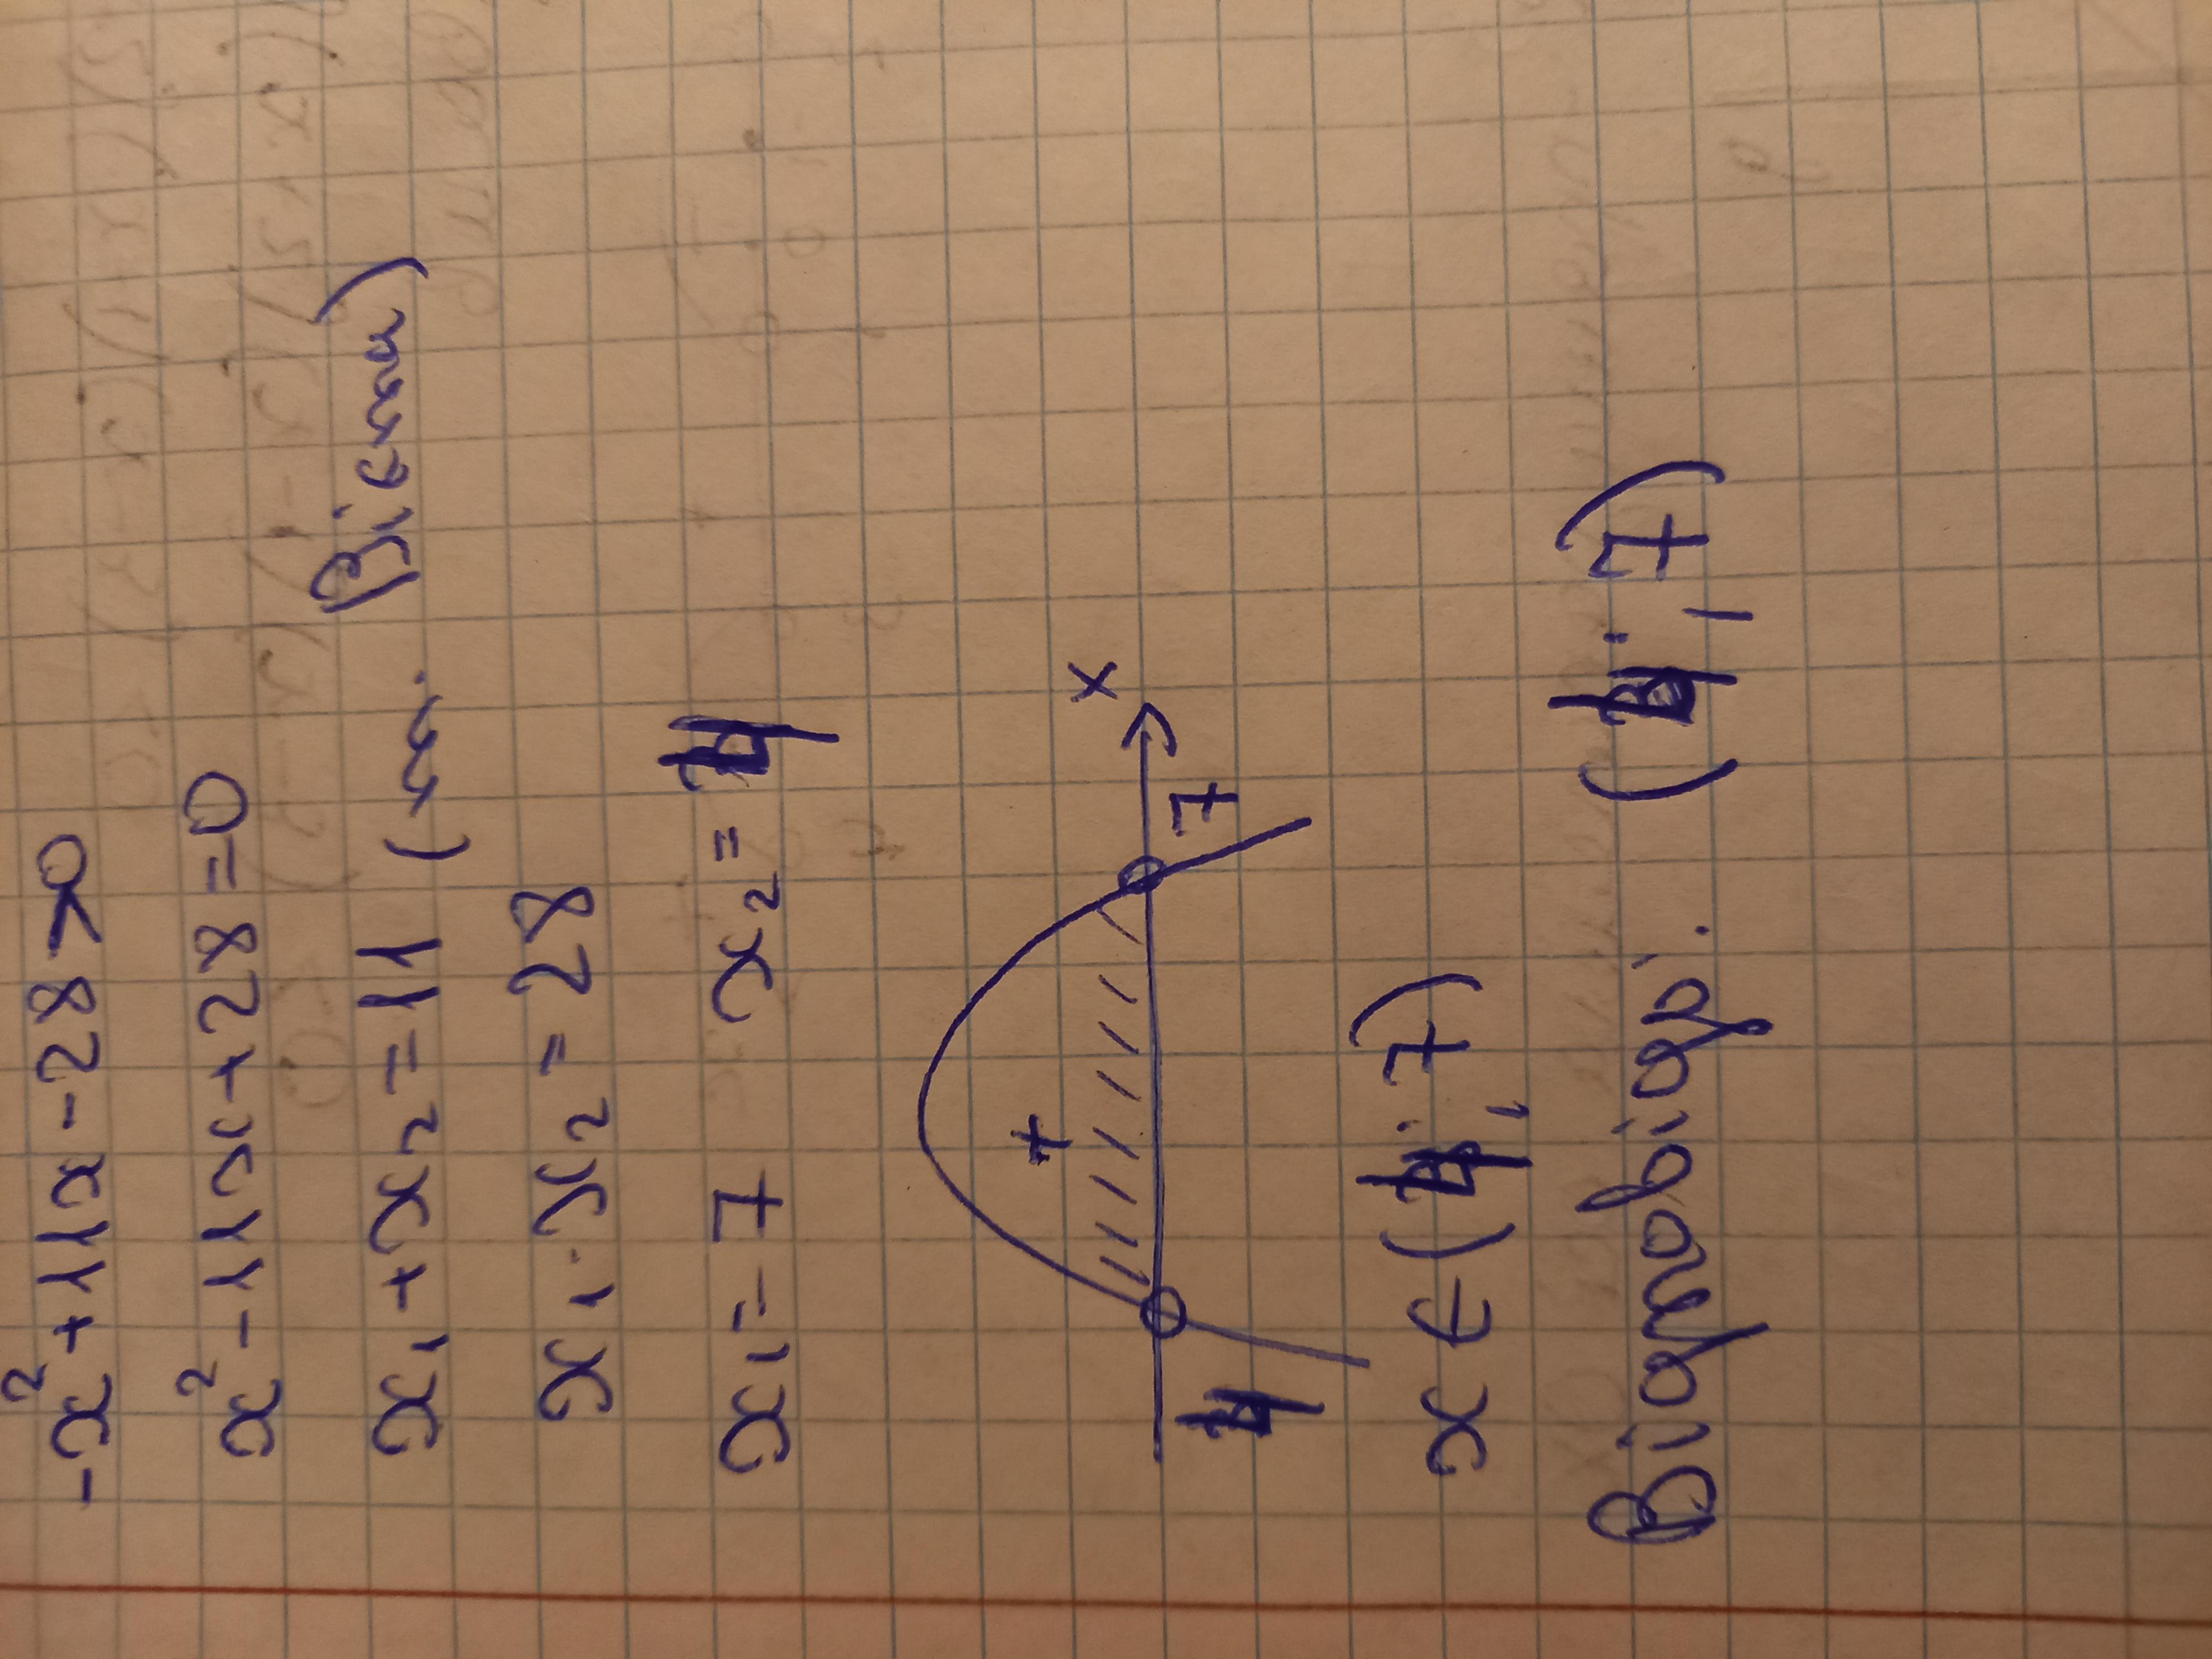 -x²+11x-28>0
x²-11x+28=0
x₁+x₂=11 (т. Вієта)
x₁·x₂=28
x₁=7 x₂=4
+
x
4 7
x∈(4;7)
Відповідь: (4;7)